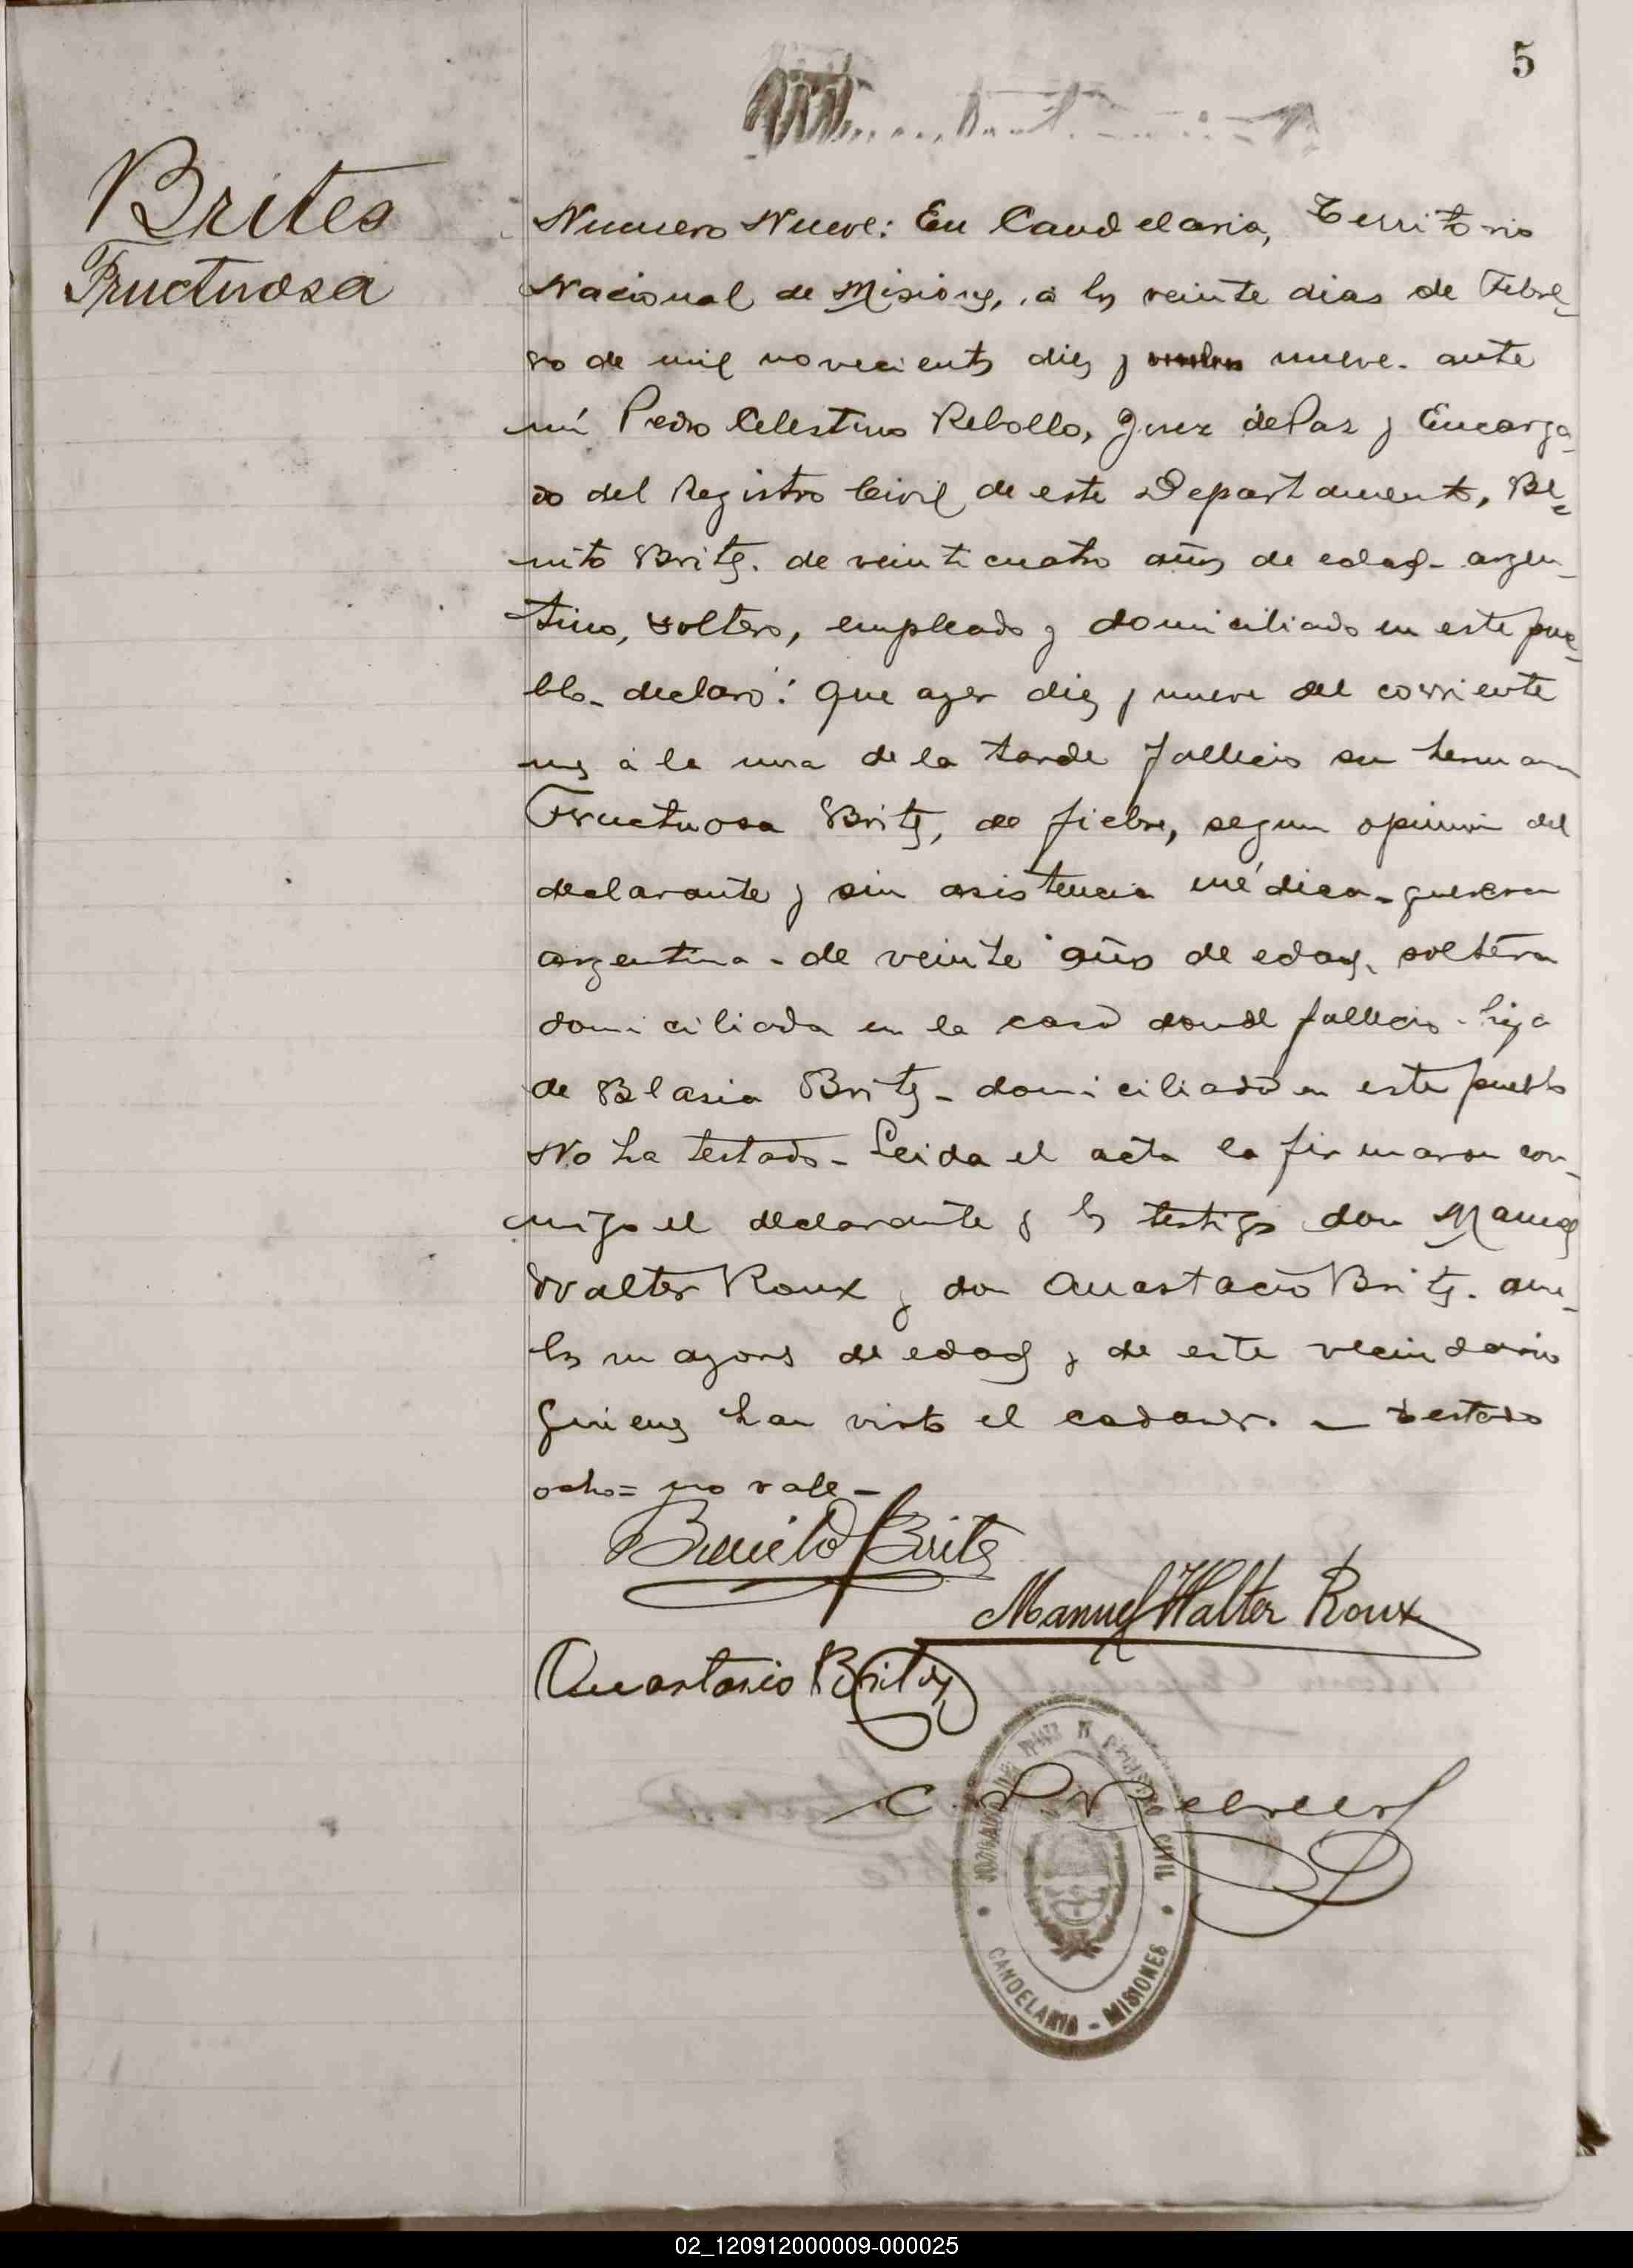 5
Brites
Fructuosa
Numero Nueve: En Candelaria, Territorio
Nacional de Misiones, á los veinte dias de Febre
ro de mil novecientos diez y ocho nueve. ante
mí Pedro Celestino Rebollo, Juez de Paz y Encarga
do del Registro Civil de este Departamento, Be
nito Brites. de veinticuatro años de edad- argen
tino, soltero, empleado y domiciliado en este pue
blo- declaró: Que ayer diez y nueve del corriente
mes á la una de la tarde falleció su hermana
Fructuosa Brites, de fiebre, segun opinión del
declarante y sin asistencia médica- que era
argentina- de veinte años de edad, soltera
domiciliada en la casa donde falleció- hija
de Blasia Brites- domiciliada en este pueblo
No ha testado- Leida el acta la firmaron con
migo el declarante y los testigos don Manuel
Walter Roux y don Anastacio Brites. am
bos mayores de edad y de este vecindario
quienes han visto el cadaver. - Testado
ocho= no vale-
Benito Brites
Manuel Walter Roux
Anastasio Brites
C. P. Rebollo
JUZGADO DE PAZ Y REGISTRO CIVIL
CANDELARIA - MISIONES
02_120912000009-000025